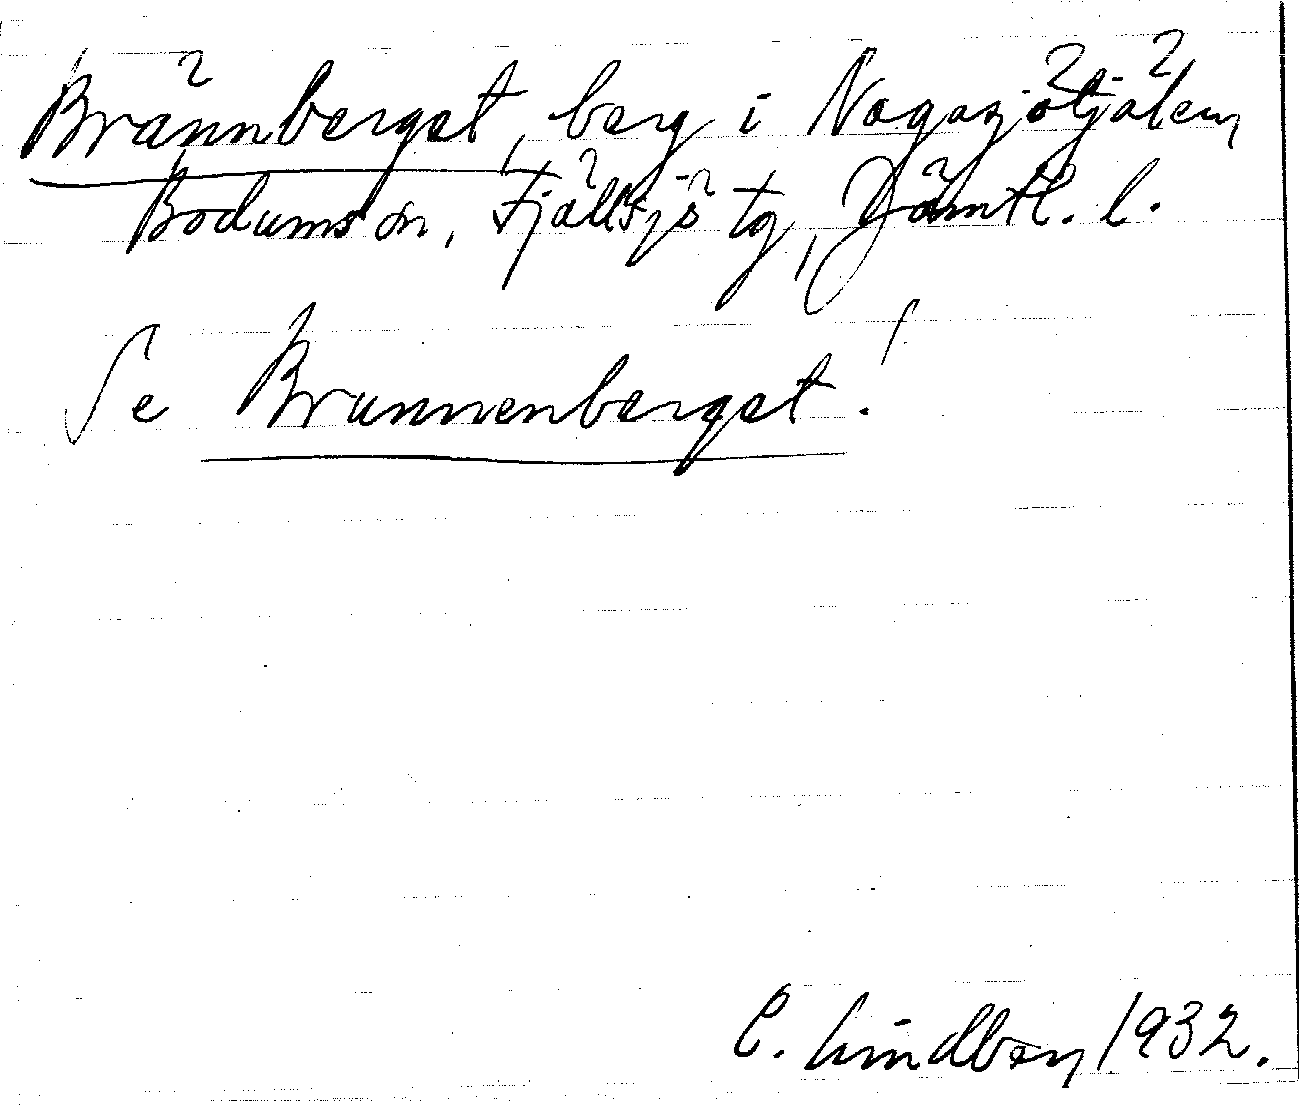 Brännberget, berg i Nagasjötjälen,
Bodums sn, Fjällsjö tg, Jämtl. l.
Se Brunnenberget!
C. Lindberg 1932.